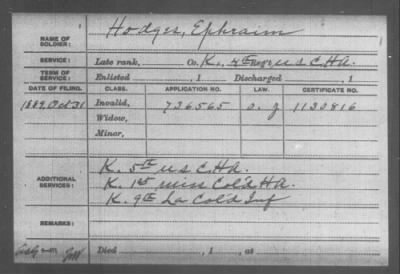 NAME OF SOLDIER: Hodges, Ephraim
SERVICE: Late rank, Co. K, 4 Reg. U S C. H A.
TERM OF SERVICE: Enlisted , 1 Discharged , 1
DATE OF FILING. CLASS. APPLICATION NO. LAW. CERTIFICATE NO.
1889, Oct 31 Invalid, 736565 1130816
Widow,
Minor,
ADDITIONAL SERVICES: K. 5th U S C. H A.
K. 1st Miss Col'd H A.
K. 9th La Col'd Inf
REMARKS:
Died , 1 , at